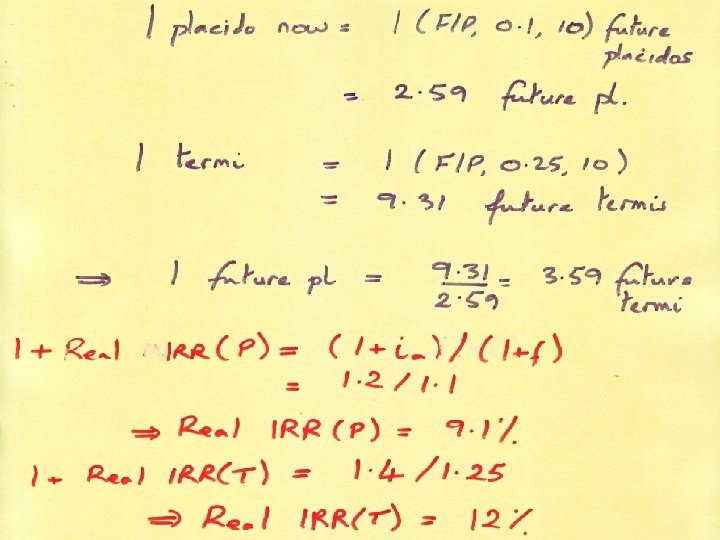 1 placido now = 1 (F/P, 0.1, 10) future placidos
= 2.59 future pl.
1 termi = 1 (F/P, 0.25, 10)
= 9.31 future termis
⇒ 1 future pl = 9.31/2.59 = 3.59 future termi
1 + Real IRR(P) = (1+ia)/(1+f)
= 1.2/1.1
⇒ Real IRR(P) = 9.1%
1 + Real IRR(T) = 1.4/1.25
⇒ Real IRR(T) = 12%